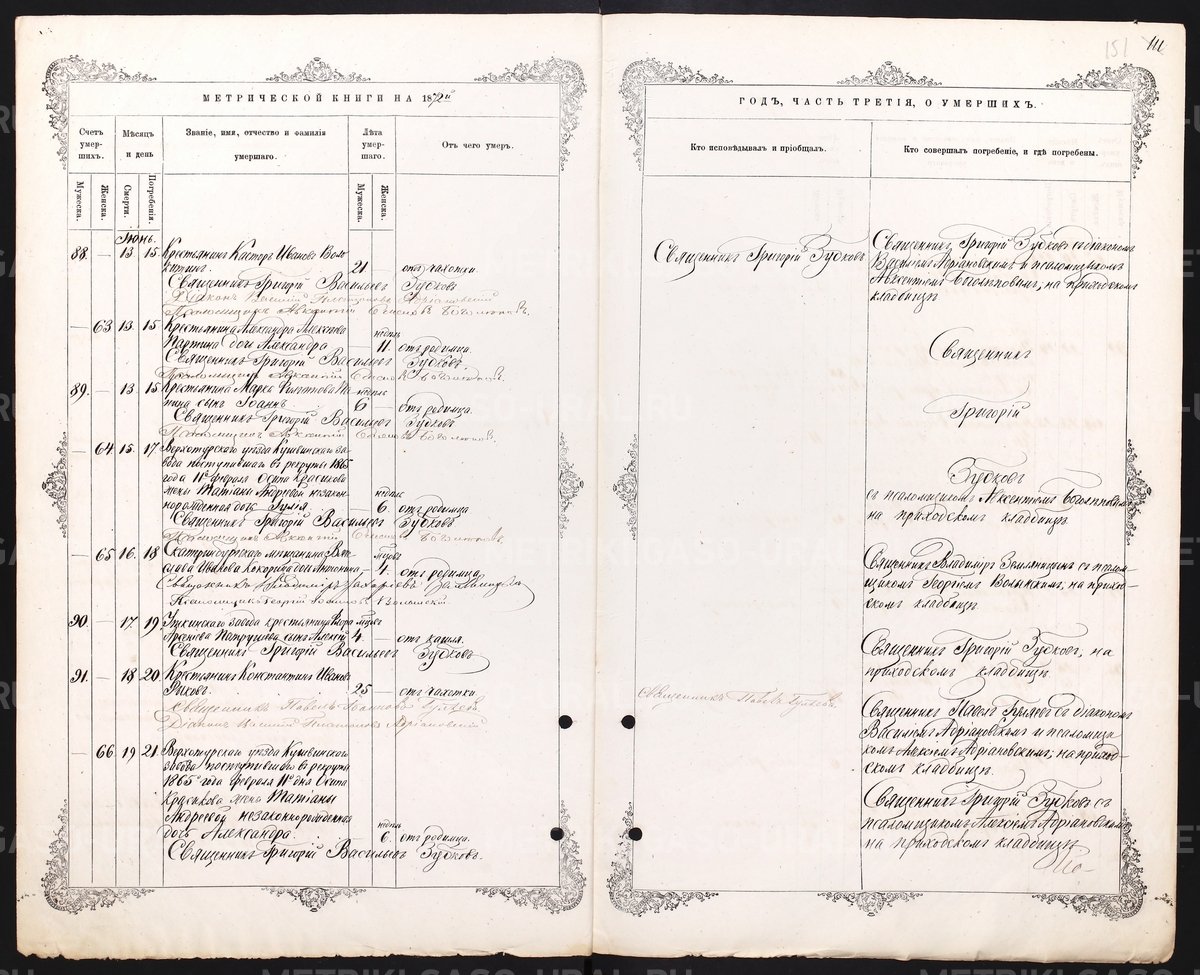 151
МЕТРИЧЕСКОЙ КНИГИ НА 1872й
Счетъ умершихъ.
Мужеска.
Женска.
Мѣсяцъ и день
Смерти.
Погребенія.
Званіе, имя, отчество и фамилія умершаго.
Лѣта умершаго.
Мужеска.
Женска.
Отъ чего умеръ.
Іюнь.
88. — 13. 15. Крестьянинъ Касторъ Ивановъ
21 — отъ чахотки.
Священникъ Григорій Васильевъ Зубковъ
Діаконъ Василій Адріановскій
Псаломщикъ
— 63 13. 15 Крестьянина Александра Алексѣева
недѣль
дочь Александра — 11. отъ родимца.
Священникъ Григорій Васильевъ Зубковъ.
Псаломщикъ
89. — 13. 15 Крестьянина Марка
недѣль
сынъ Іоаннъ 6 — отъ родимца.
Священникъ Григорій Васильевъ Зубковъ
Псаломщикъ
— 64 15. 17. Верхотурскаго уѣзда Кушвинскаго за-
вода поступившаго въ рекруты 1865
года 11го февраля Осипа Красикова
жены Татіаны Андреевой незакон-
недѣль
норожденная дочь Іулія — 6. отъ родимца
Священникъ Григорій Васильевъ Зубковъ
Псаломщикъ
— 65 16. 18 Екатеринбургскаго мѣщанина Вяче-
слава Иванова дочь Антонина — 4. отъ родимца.
Священникъ Владиміръ Захаріевъ Земляницынъ
Псаломщикъ Георгій Волынскій.
90. — 17 19 Уткинскаго завода крестьянина
Арсенія Патрушева сынъ Алексій 4. — отъ кашля.
Священникъ Григорій Васильевъ Зубковъ
91. — 18 20 Крестьянинъ Константинъ Ивановъ
25 — отъ чахотки.
Священникъ Павелъ Гуляевъ
Діаконъ Василій Адріановскій
— 66 19 21. Верхотурскаго уѣзда Кушвинскаго
завода поступившаго въ рекруты
1865 года февраля 11го дня Осипа
Красикова жены Татіаны
Андреевой незаконнорожденная
недѣль
дочь Александра. — 6. отъ родимца.
Священникъ Григорій Васильевъ Зубковъ.
ГОДЪ, ЧАСТЬ ТРЕТІЯ, О УМЕРШИХЪ.
Кто исповѣдывалъ и пріобщалъ.
Кто совершалъ погребеніе, и гдѣ погребены.
Священникъ Григорій Зубковъ
Священникъ Григорій Зубковъ съ діакономъ
Василіемъ Адріановскимъ и псаломщикомъ
Авксентіемъ Боголѣповымъ, на приходскомъ
кладбищѣ.
Священникъ
Григорій
Зубковъ
съ псаломщикомъ Авксентіемъ Боголѣповымъ
на приходскомъ кладбищѣ
Священникъ Владиміръ Земляницынъ съ псалом-
щикомъ Георгіемъ Волынскимъ, на приход-
скомъ кладбищѣ.
Священникъ Григорій Зубковъ, на
приходскомъ кладбищѣ.
Священникъ Павелъ Гуляевъ.
Священникъ Павелъ Гуляевъ съ діакономъ
Василіемъ Адріановскимъ и псаломщи-
комъ Алексіемъ Адріановскимъ, на приход-
скомъ кладбищѣ.
Священникъ Григорій Зубковъ съ
псаломщикомъ Алексіемъ Адріановскимъ,
на приходскомъ кладбищѣ